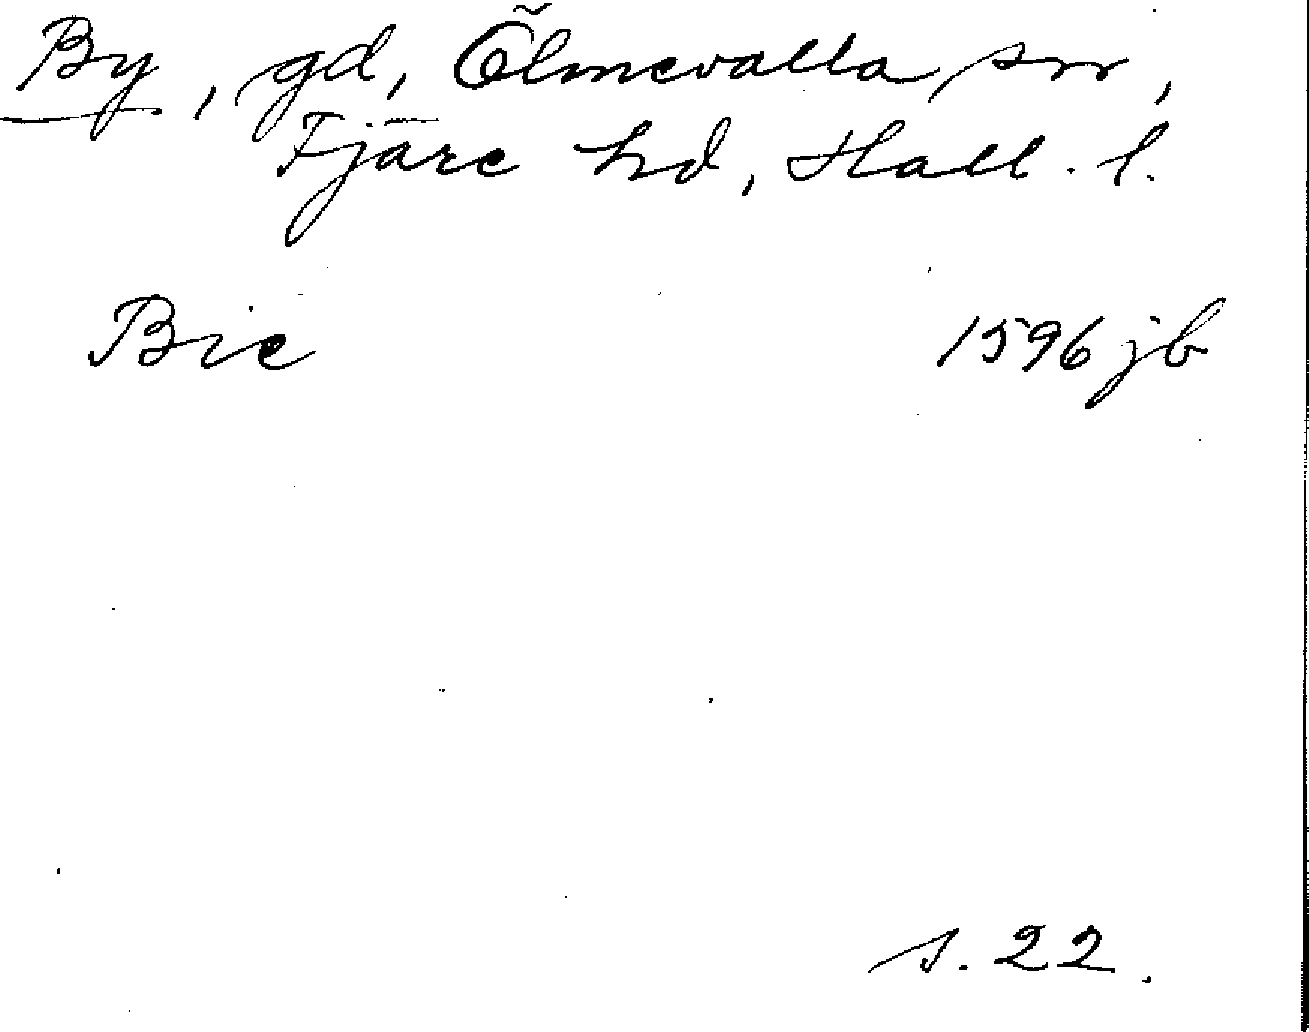 By, gd, Ölmevalla sn,
Fjäre hd, Hall. l.
Bie 1596 jb
s. 22.